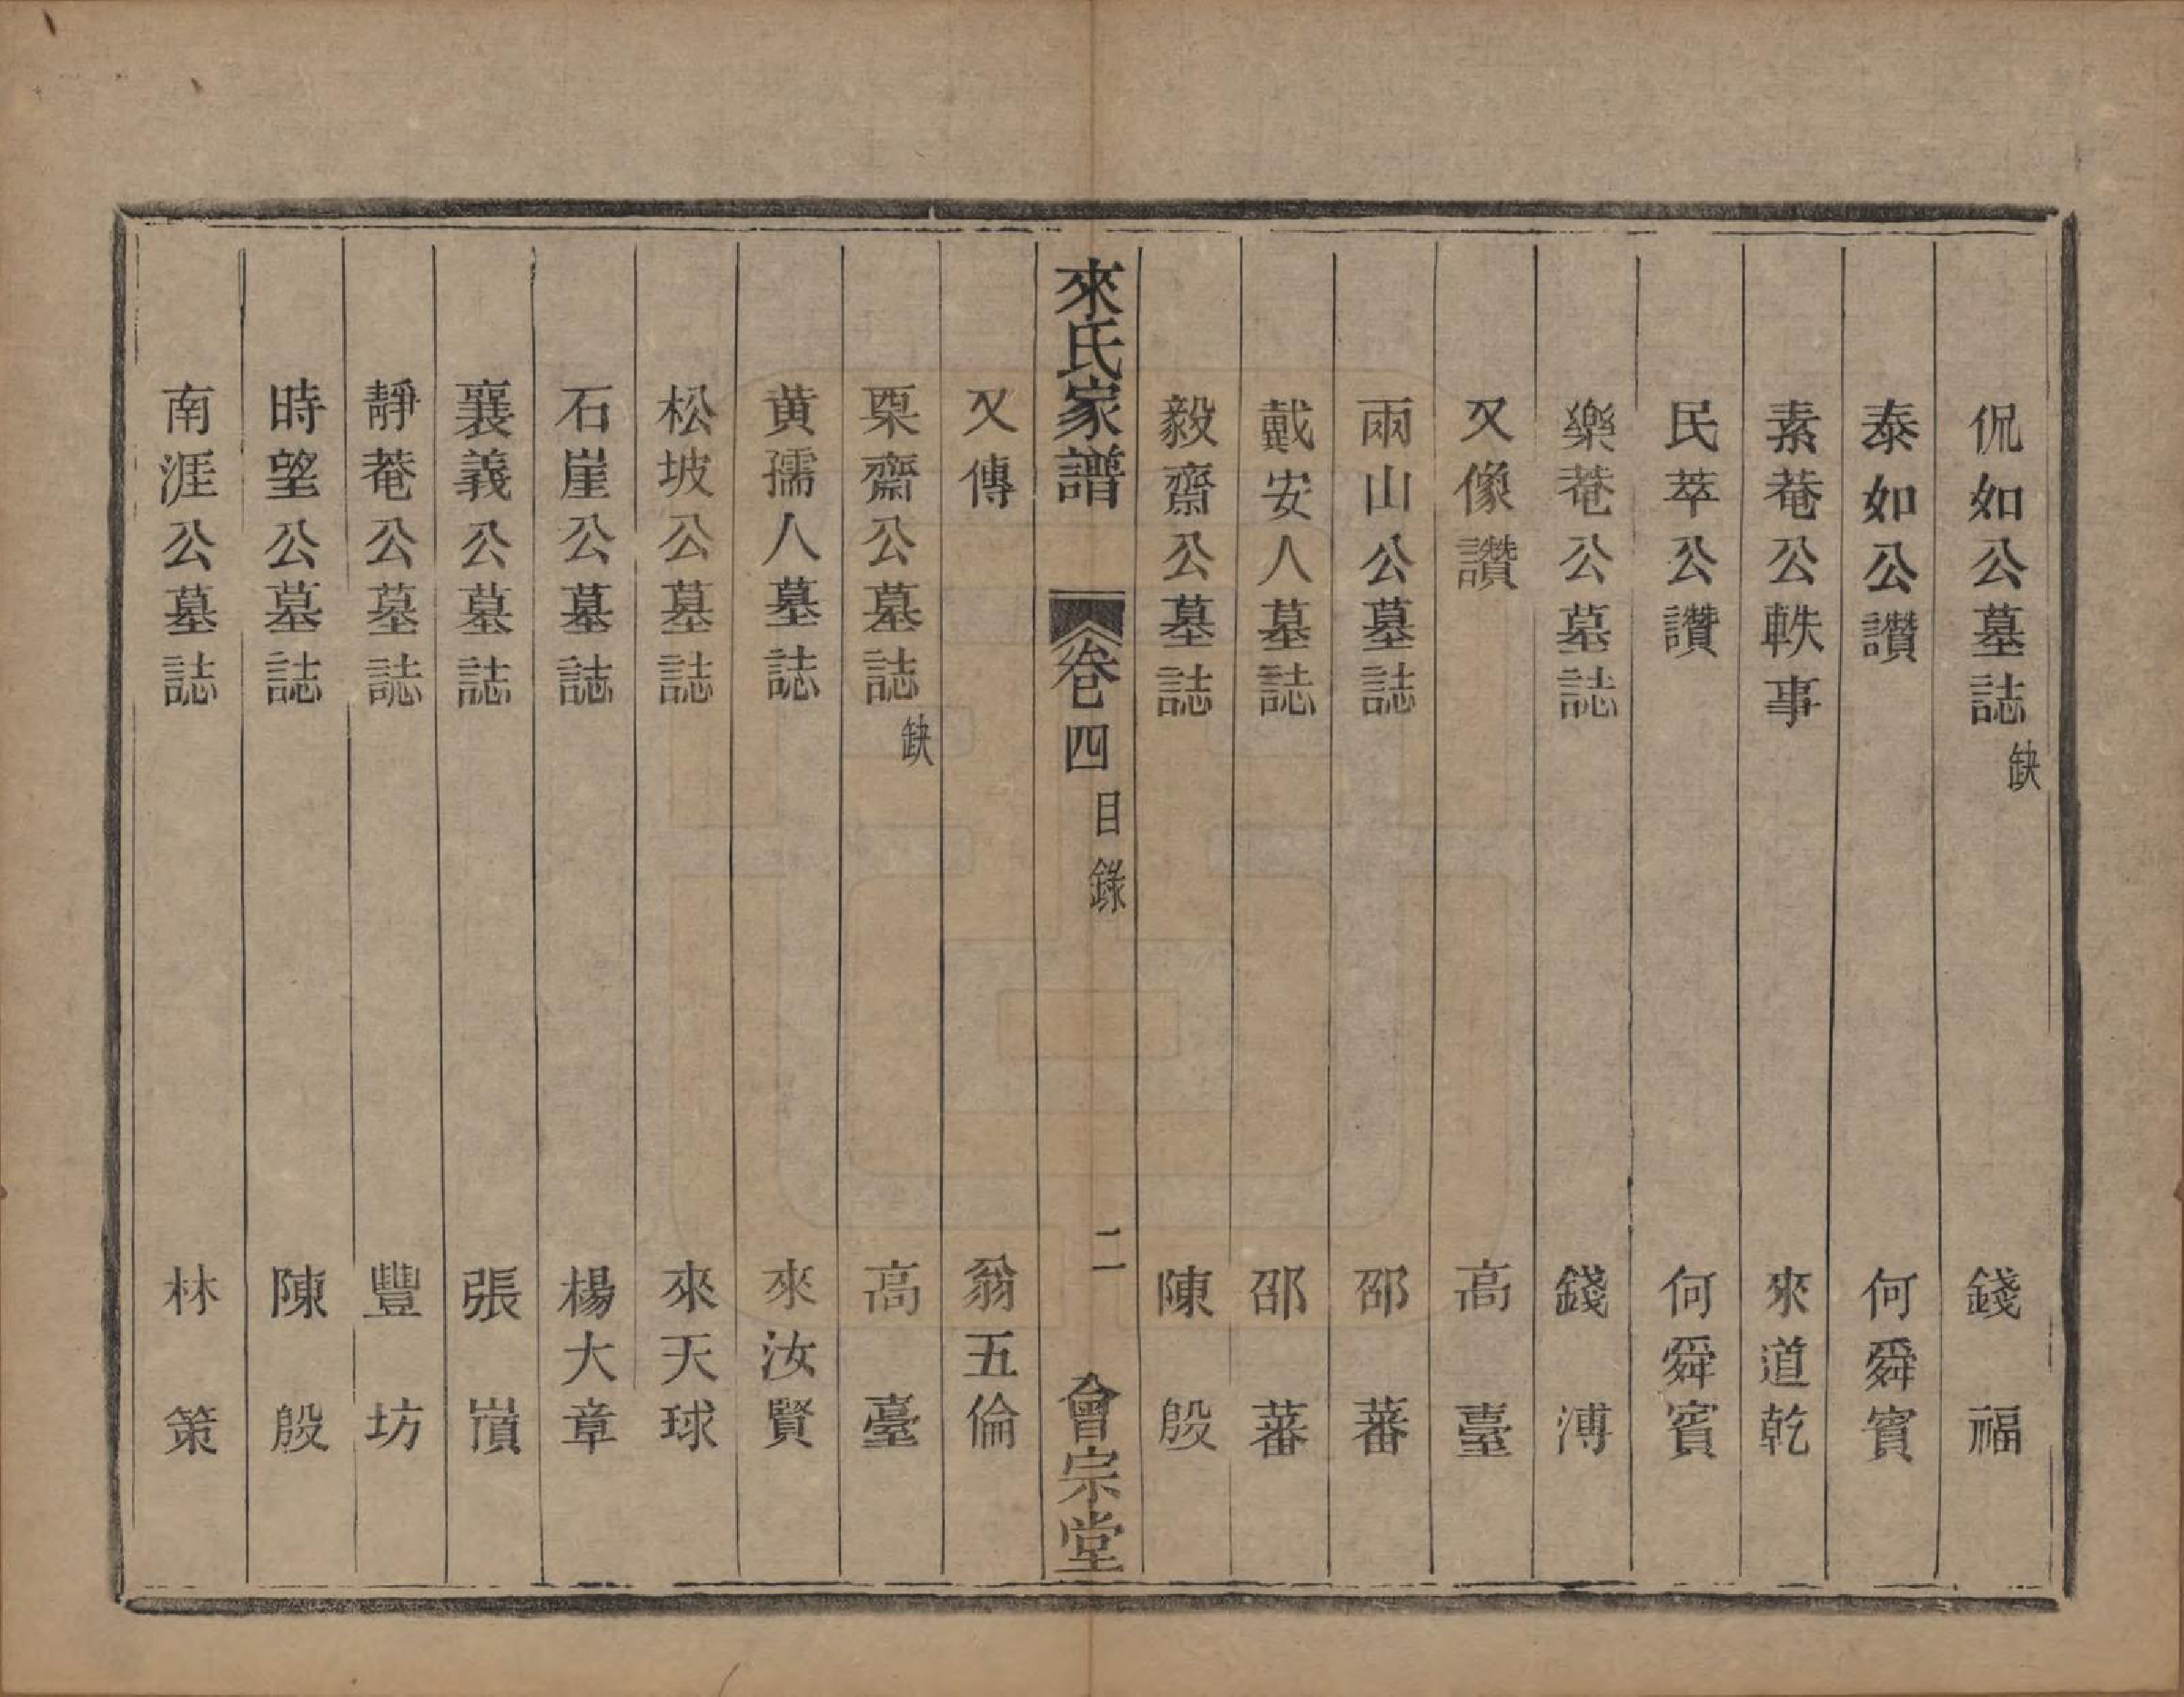 侃如公墓誌缺　錢福
泰如公讚　何舜賓
素菴公軼事　來道乾
民萃公讚　何舜賓
樂菴公墓誌　錢溥
又像讚　高臺
兩山公墓誌　邵蕃
戴安人墓誌　邵蕃
毅齋公墓誌　陳殷
來氏家譜　卷四　目錄　二　會宗堂
又傳　翁五倫
栗齋公墓誌缺　高臺
黄孺人墓誌　來汝賢
松坡公墓誌　來天球
石崖公墓誌　楊大章
襄義公墓誌　張嵿
靜菴公墓誌　豐坊
時望公墓誌　陳殷
南涯公墓誌　林策